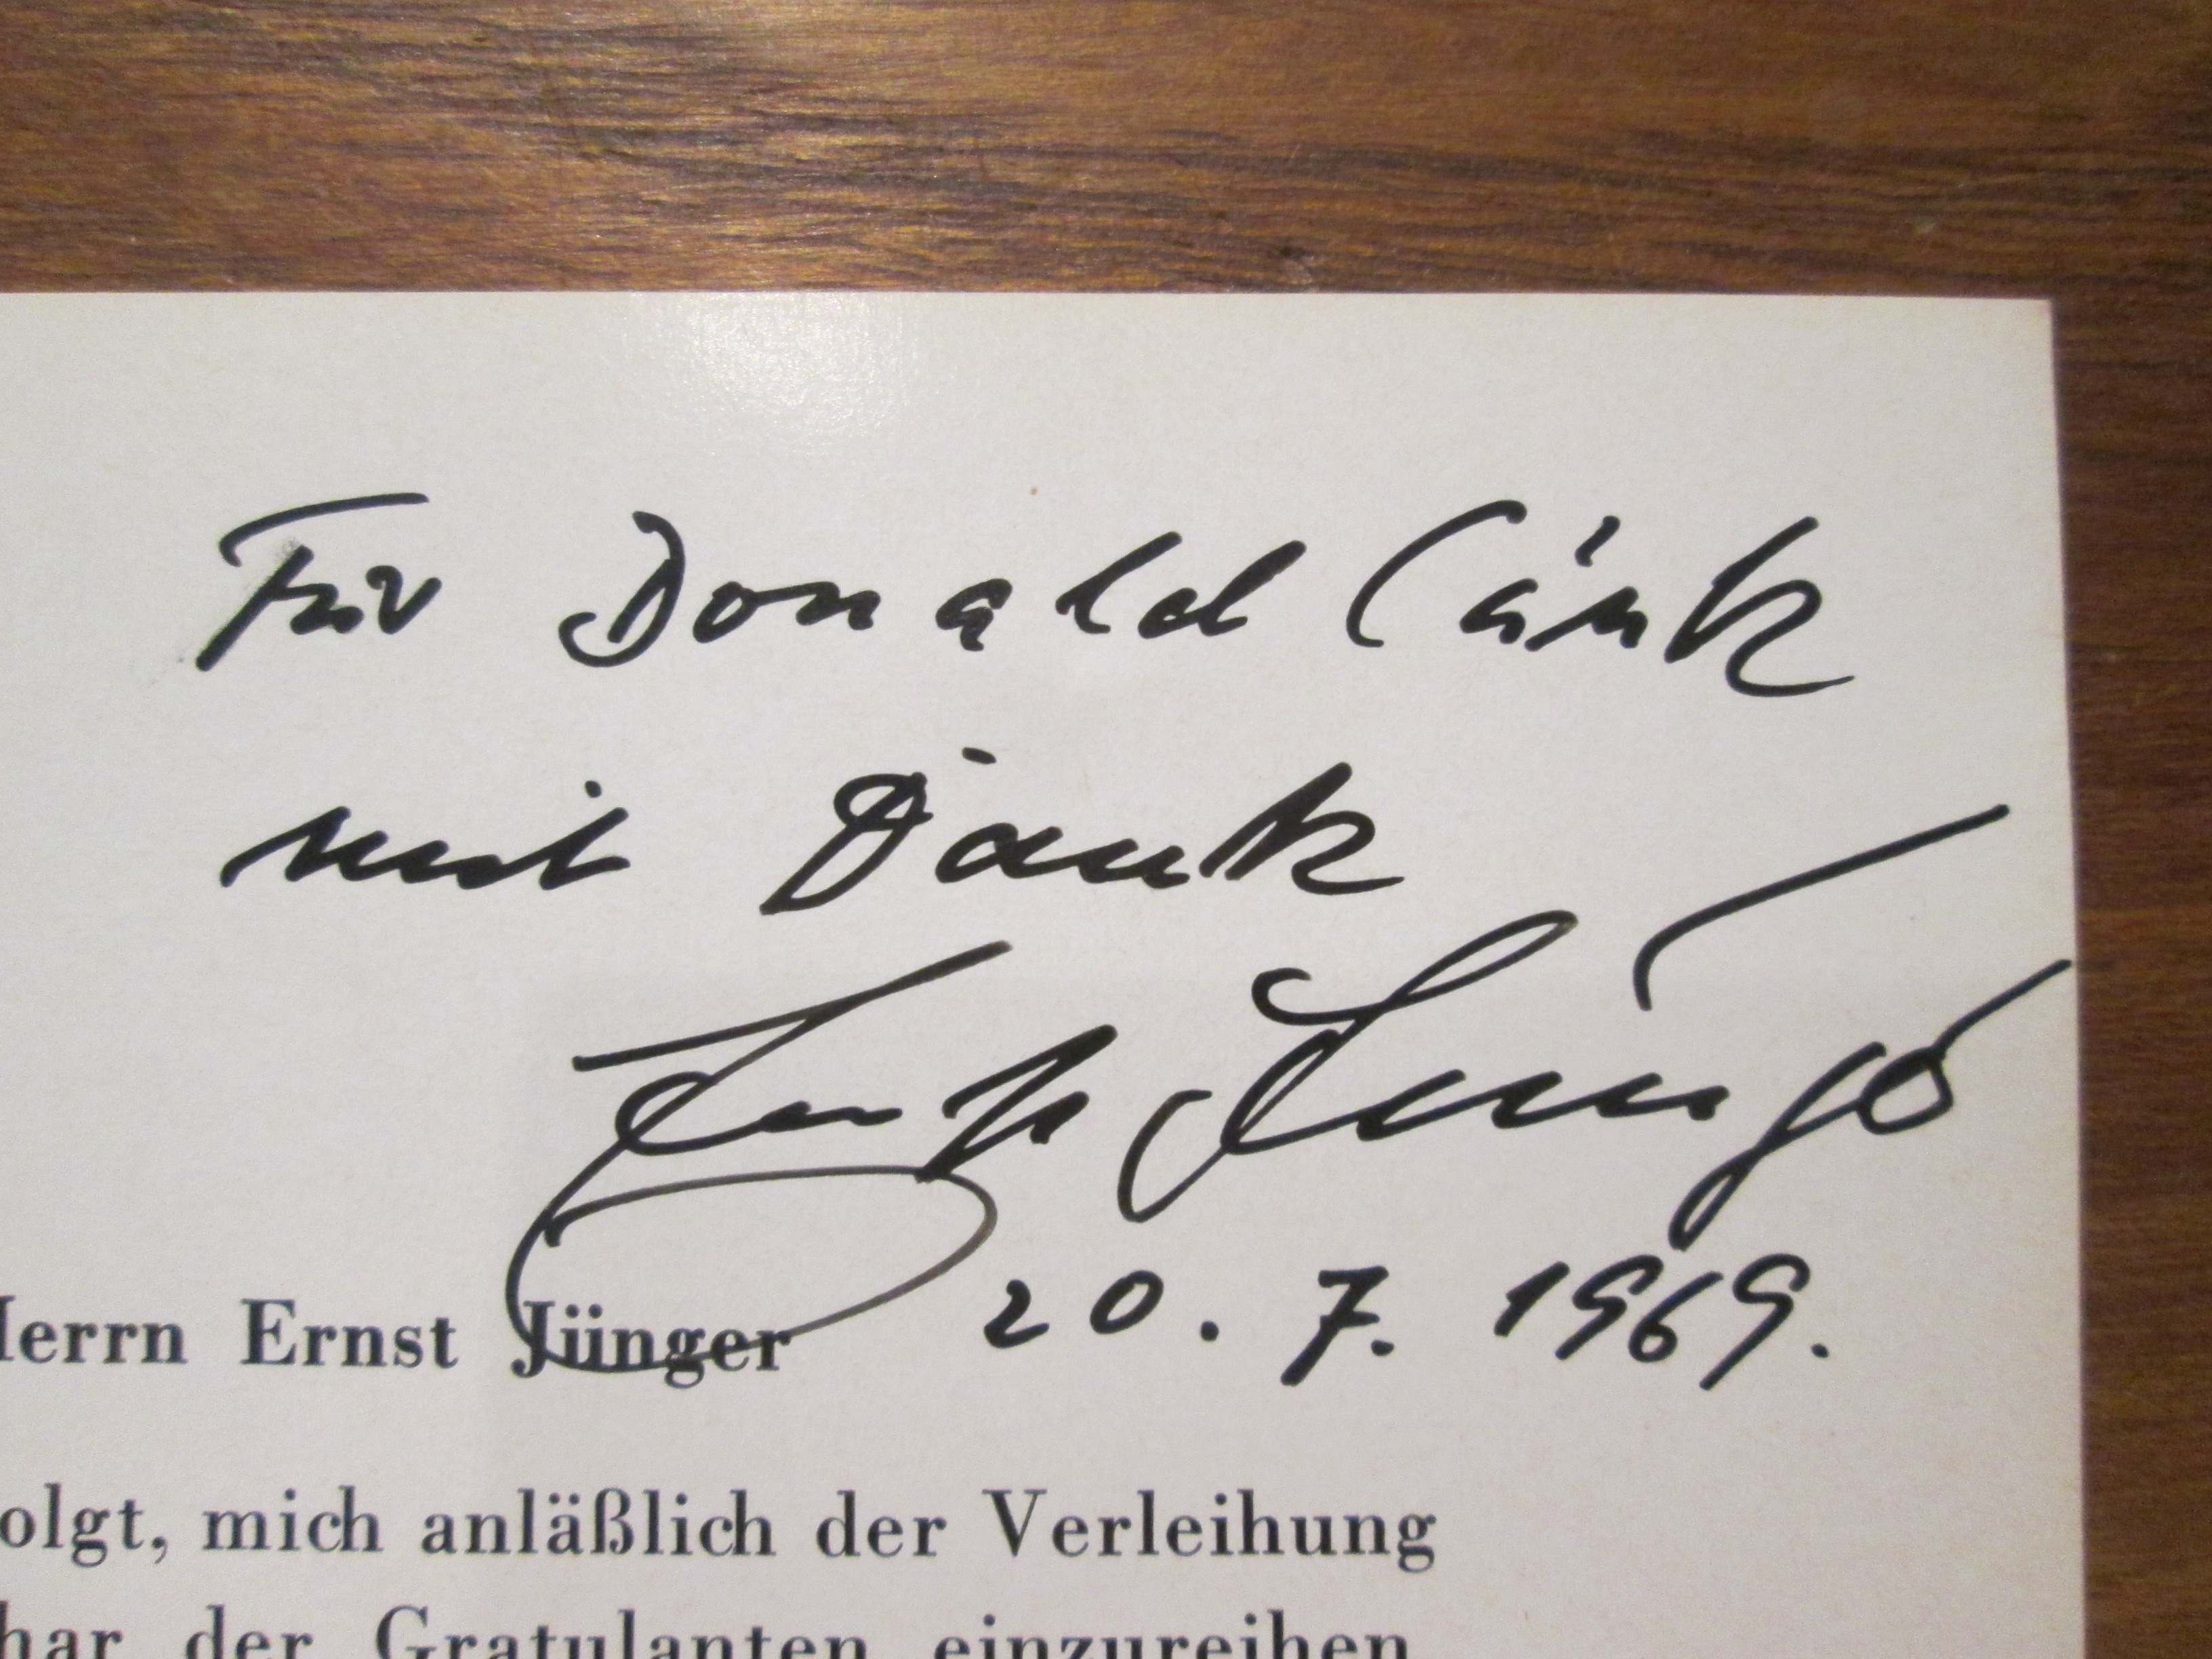 Für Donald
mit Dank
Ernst Jünger
20. 7. 1969.
Herrn Ernst Jünger
olgt, mich anläßlich der Verleihung
har der Gratulanten einzureihen